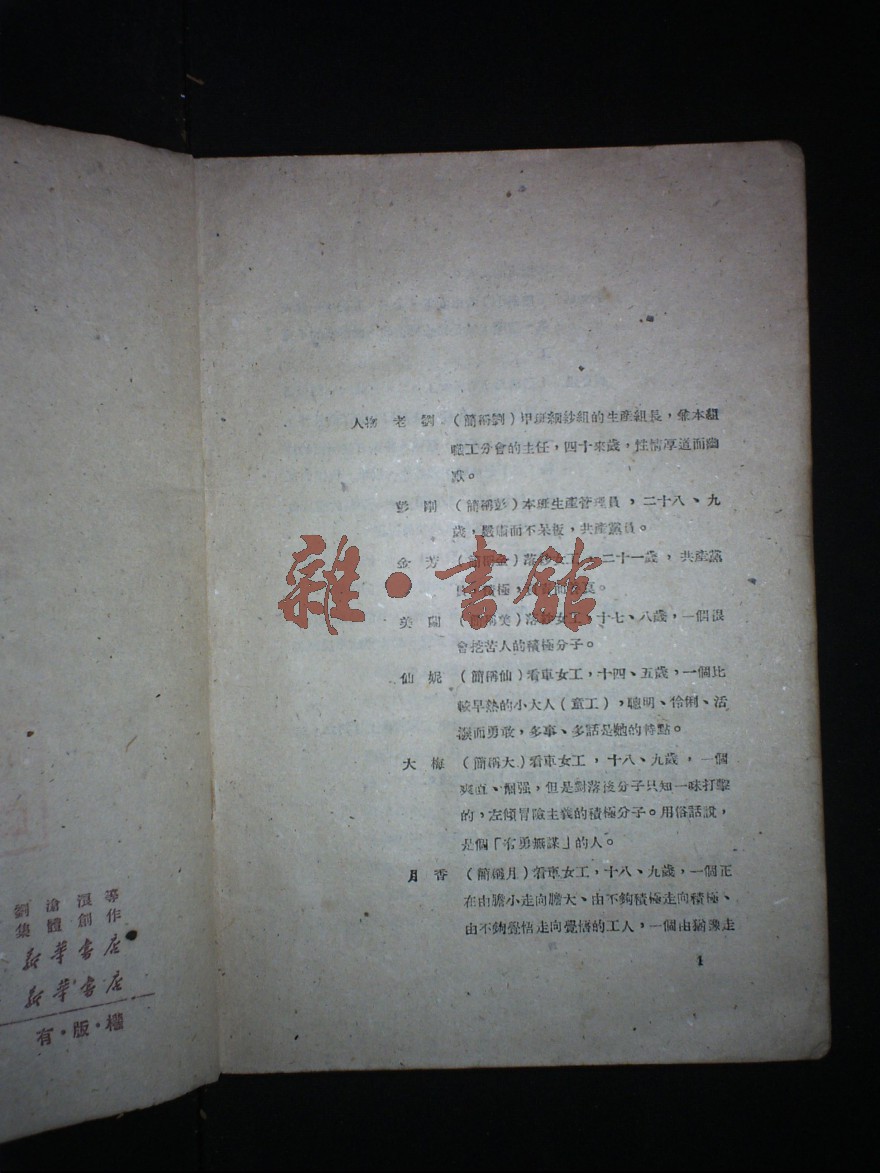 人物 老劉 (簡稱劉)甲班細紗組的生產組長,兼本組
職工分會的主任,四十來歲,性情厚道而幽
默。
彭剛 (簡稱彭)本班生產管理員,二十八、九
歲,嚴肅而不呆板,共產黨員。
金芳 (簡稱金)落紗女工,二十一歲,共產黨
員,積極,
美蘭 (簡稱美)落紗女工,十七、八歲,一個很
會挖苦人的積極分子。
仙妮 (簡稱仙)看車女工,十四、五歲,一個比
較早熟的小大人(童工),聰明、伶俐、活
潑而勇敢,多事、多話是她的特點。
大梅 (簡稱大)看車女工,十八、九歲,一個
爽直、倔强,但是對落後分子只知一味打擊
的,左傾冒險主義的積極分子。用俗話說,
是個「有勇無謀」的人。
月香 (簡稱月)看車女工,十八、九歲,一個正
在由膽小走向膽大、由不夠積極走向積極、
由不夠覺悟走向覺悟的工人,一個由猶豫走
1
雜·書館
劉滄浪等
集體創作
新華書店
新華書店
有·版·權